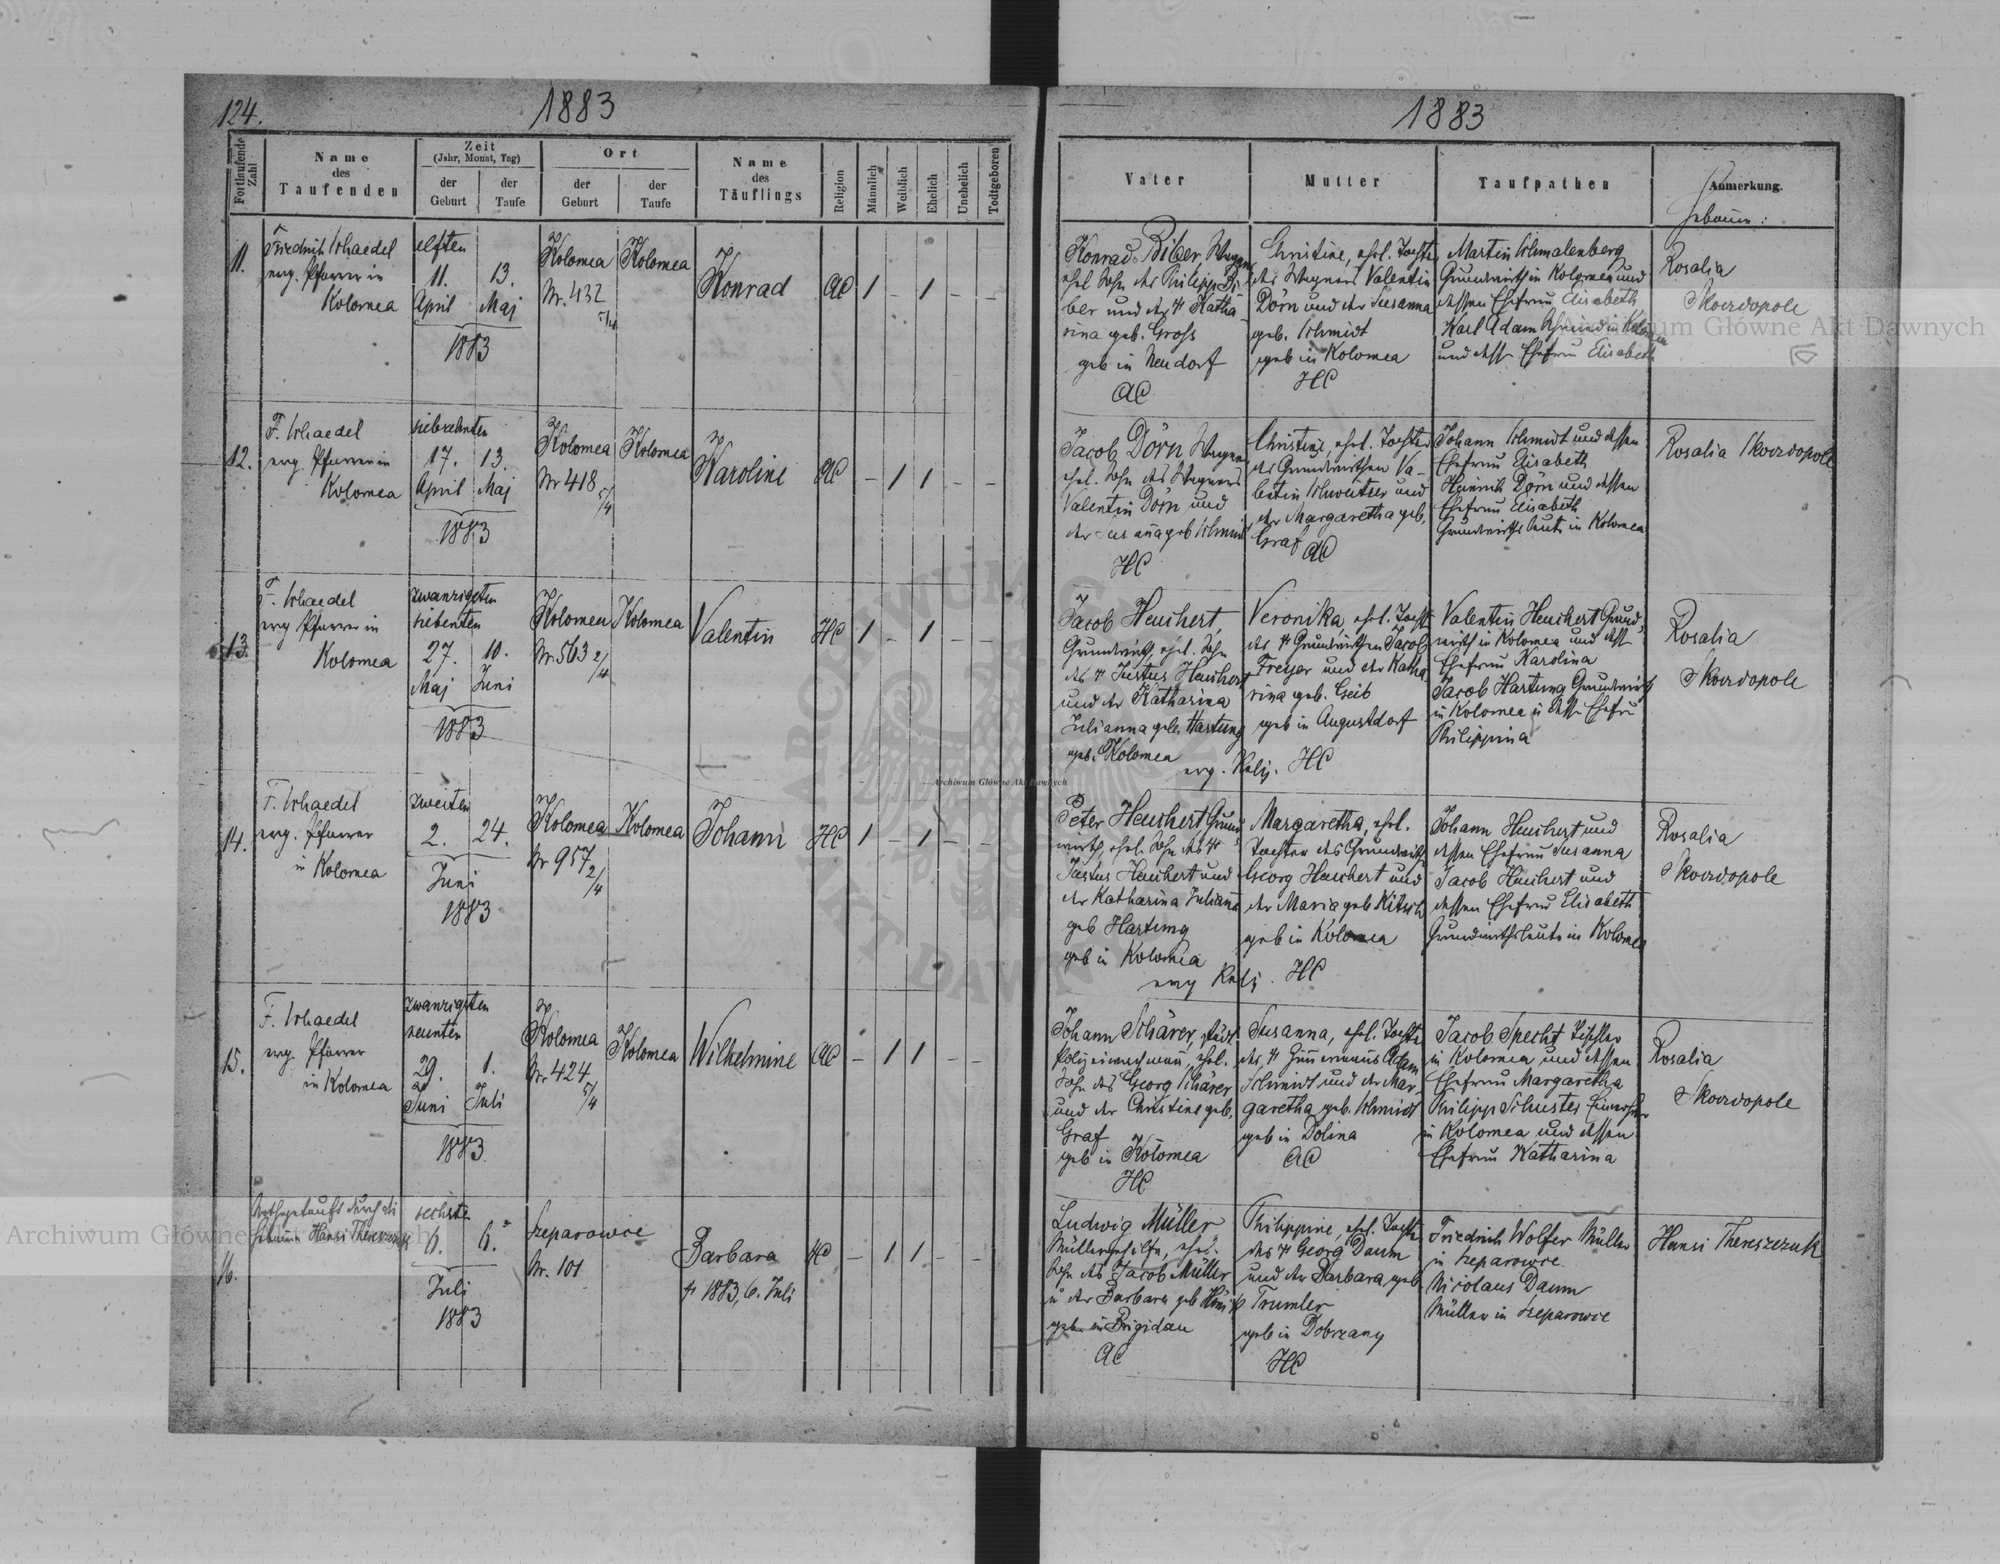 124.
1883
Fortlaufende Zahl
Name
des
Taufenden
Zeit
(Jahr, Monat, Tag)
der
Geburt
der
Taufe
Ort
der
Geburt
der
Taufe
Name
des
Täuflings
Religion
Männlich
Weiblich
Ehelich
Unehelich
Todtgeboren
11.
Friedrich Schaedel
evg. Pfarrer in
Kolomea
elften
11. 13.
April Maj
1883
Kolomea
Nr. 432
5/4
Kolomea
Konrad
AC 1 – 1 – –
12.
F. Schaedel
evg. Pfarrer in
Kolomea
siebzehnten
17. 13.
April Maj
1883
Kolomea
Nr 418
5/4
Kolomea
Karoline
AC – 1 1 – –
13.
F. Schaedel
evg Pfarrer in
Kolomea
zwanzigsten
siebenten
27. 10.
Maj Juni
1883
Kolomea
Nr. 563 2/4
Kolomea
Valentin
HC 1 – 1 – –
14.
F. Schaedel
evg. Pfarrer
in Kolomea
zweiten
2. 24.
Juni
1883
Kolomea
Nr 957
2/4
Kolomea
Johann
HC 1 – 1 – –
15.
F. Schaedel
evg. Pfarrer
in Kolomea
zwanzigsten
neunten
29. 1.
Juni Juli
1883
Kolomea
Nr. 424
5/4
Kolomea
Wilhelmine
AC – 1 1 – –
16.
Nothgetauft durch die
Hebamme Hansi Thereszczuk
sechste
6. 6.
Juli
1883
Szeparowce
Nr. 101
Barbara
† 1883, 6. Juli
HC – 1 1 – –
1883
Vater
Mutter
Taufpathen
Anmerkung.
Hebamme:
Konrad Biber, Wagner
ehel Sohn des Philipp Bi-
ber und der † Katha-
rina geb. Gross
geb in Neudorf
AC
Christine, ehel. Tochter
des Wagners Valentin
Dörn und der Susanna
geb. Schmidt
geb in Kolomea
HC
Martin Schmalenberg
Grundwirth in Kolomea und
dessen Ehefrau Elisabeth
Karl Adam Schmied in Kolomea
und dess Ehefrau Elisabeth
Rosalia
Skoordopole
Jacob Dörn Wagner
ehel. Sohn des Wagners
Valentin Dörn und
der Susanna geb Schmidt
HC
Christine, ehel. Tochter
des Grundwirthen Va-
lentin Schweitzer und
der Margaretha geb.
Graf AC
Johann Schmidt und dessen
Ehefrau Elisabeth
Heinrich Dörn und dessen
Ehefrau Elisabeth
Grundwirthsleute in Kolomea
Rosalia Skoordopole
Jacob Heuchert
Grundwirth, ehel. Sohn
des † Justus Heuchert
und der Katharina
Julianna geb. Hartung
geb. Kolomea
Veronika, ehel. Tocht
des † Grundwirthen Jacob
Freyer und der Katha-
rina geb. Geib
geb in Augustdorf
evg. Relig. HC
Valentin Heuchert Grund-
wirth in Kolomea und dess
Ehefrau Karolina
Jacob Hartung Grundwirth
in Kolomea u dess Ehefru
Philippina
Rosalia
Skoordopole
Peter Heuchert Grund-
wirth, ehel. Sohn des †
Justus Heuchert und
der Katharina Juliann
geb Hartung
geb in Kolomea
Margaretha, ehel.
Tochter des Grundwirth
Georg Heuchert und
der Maria geb Kitsch
geb in Kolomea
evg Relig. HC
Johann Heuchert und
dessen Ehefrau Susanna
Jacob Heuchert und
dessen Ehefrau Elisabeth
Grundwirthsleute in Kolomea
Rosalia
Skoordopole
Johann Schärer, städt
Polizeiwachmann, ehel.
Sohn des Georg Schärer
und der Christine geb.
Graf
geb in Kolomea
HC
Susanna, ehel. Tochter
des † Adam
Schmidt und der Mar-
garetha geb. Schmidt
geb in Dolina
AC
Jacob Specht Tischler
in Kolomea und dessen
Ehefrau Margaretha
Philipp Schuster Einwohner
in Kolomea und dessen
Ehefrau Katharina
Rosalia
Skoordopole
Ludwig Müller
Müllergehilfe, ehel.
Sohn des Jacob Müller
u der Barbara geb
geb. in Brigidau
AC
Philippine, ehel. Tochter
des † Georg Daum
und der Barbara geb.
Trumler
geb in Dobrzany
HC
Friedrich Wolfer Müller
in Szeparowce.
Nicolaus Daum
Müller in Szeparowce
Hansi Thereszczuk
Archiwum Główne Akt Dawnych
Archiwum Główne Akt Dawnych
Archiwum Główne Akt Dawnych